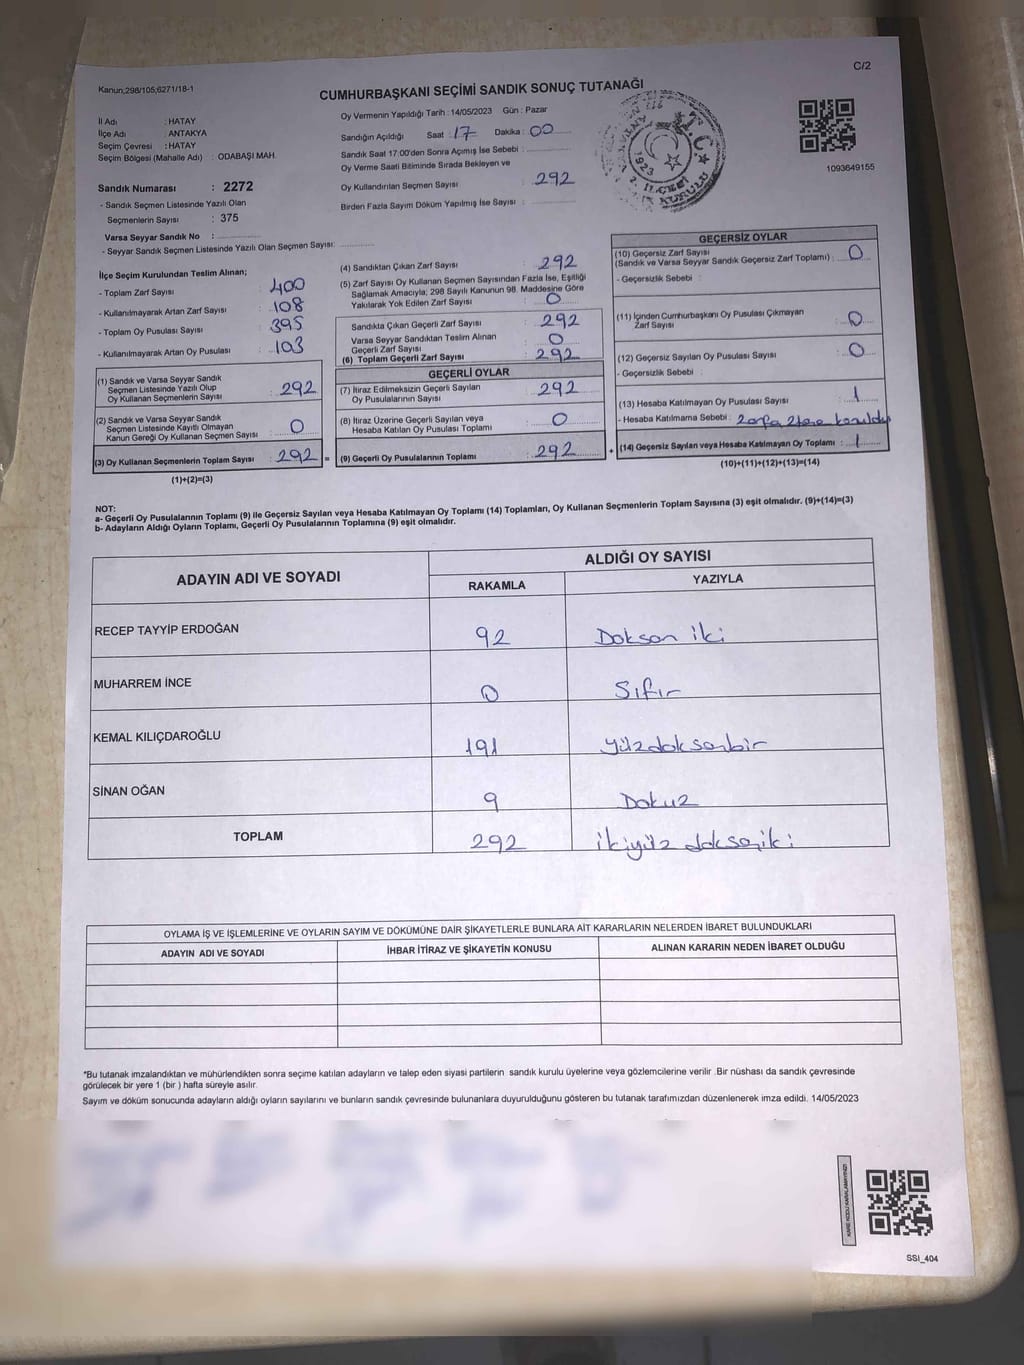 C/2
Kanun;298/105;6271/18-1
CUMHURBAŞKANI SEÇİMİ SANDIK SONUÇ TUTANAĞI
İl Adı : HATAY
İlçe Adı : ANTAKYA
Seçim Çevresi : HATAY
Seçim Bölgesi (Mahalle Adı) : ODABAŞI MAH.
Sandık Numarası : 2272
- Sandık Seçmen Listesinde Yazılı Olan
Seçmenlerin Sayısı : 375
Varsa Seyyar Sandık No :
- Seyyar Sandık Seçmen Listesinde Yazılı Olan Seçmen Sayısı:
Oy Vermenin Yapıldığı Tarih : 14/05/2023 Gün : Pazar
Sandığın Açıldığı Saat : 17 Dakika : 00
Sandık Saat 17.00'den Sonra Açımış İse Sebebi :
Oy Verme Saati Bitiminde Sırada Bekleyen ve
Oy Kullandırılan Seçmen Sayısı : 292
Birden Fazla Sayım Döküm Yapılmış İse Sayısı :
T.C.
1923
2. İLÇE
1093649155
İlçe Seçim Kurulundan Teslim Alınan;
- Toplam Zarf Sayısı : 400
- Kullanılmayarak Artan Zarf Sayısı : 108
- Toplam Oy Pusulası Sayısı : 395
- Kullanılmayarak Artan Oy Pusulası : 103
(1) Sandık ve Varsa Seyyar Sandık
Seçmen Listesinde Yazılı Olup
Oy Kullanan Seçmenlerin Sayısı : 292
(2) Sandık ve Varsa Seyyar Sandık
Seçmen Listesinde Kayıtlı Olmayan
Kanun Gereği Oy Kullanan Seçmen Sayısı : 0
(3) Oy Kullanan Seçmenlerin Toplam Sayısı : 292 =
(1)+(2)=(3)
(4) Sandıktan Çıkan Zarf Sayısı : 292
(5) Zarf Sayısı Oy Kullanan Seçmen Sayısından Fazla İse, Eşitliği
Sağlamak Amacıyla; 298 Sayılı Kanunun 98. Maddesine Göre
Yakılarak Yok Edilen Zarf Sayısı : 0
Sandıkta Çıkan Geçerli Zarf Sayısı : 292
Varsa Seyyar Sandıktan Teslim Alınan
Geçerli Zarf Sayısı : 0
(6) Toplam Geçerli Zarf Sayısı : 292
GEÇERLİ OYLAR
(7) İtiraz Edilmeksizin Geçerli Sayılan
Oy Pusulalarının Sayısı : 292
(8) İtiraz Üzerine Geçerli Sayılan veya
Hesaba Katılan Oy Pusulası Toplamı : 0
(9) Geçerli Oy Pusulalarının Toplamı : 292 +
GEÇERSİZ OYLAR
(10) Geçersiz Zarf Sayısı
(Sandık ve Varsa Seyyar Sandık Geçersiz Zarf Toplamı) : 0
- Geçersizlik Sebebi :
(11) İçinden Cumhurbaşkanı Oy Pusulası Çıkmayan
Zarf Sayısı : 0
(12) Geçersiz Sayılan Oy Pusulası Sayısı : 0
- Geçersizlik Sebebi :
(13) Hesaba Katılmayan Oy Pusulası Sayısı : 1
- Hesaba Katılmama Sebebi :
(14) Geçersiz Sayılan veya Hesaba Katılmayan Oy Toplamı : 1
(10)+(11)+(12)+(13)=(14)
NOT:
a- Geçerli Oy Pusulalarının Toplamı (9) ile Geçersiz Sayılan veya Hesaba Katılmayan Oy Toplamı (14) Toplamları, Oy Kullanan Seçmenlerin Toplam Sayısına (3) eşit olmalıdır. (9)+(14)=(3)
b- Adayların Aldığı Oyların Toplamı, Geçerli Oy Pusulalarının Toplamına (9) eşit olmalıdır.
ADAYIN ADI VE SOYADI ALDIĞI OY SAYISI
RAKAMLA YAZIYLA
RECEP TAYYİP ERDOĞAN 92 Doksan iki
MUHARREM İNCE 0 Sıfır
KEMAL KILIÇDAROĞLU 191 yüzdoksanbir
SİNAN OĞAN 9 Dokuz
TOPLAM 292 ikiyüz doksaniki
OYLAMA İŞ VE İŞLEMLERİNE VE OYLARIN SAYIM VE DÖKÜMÜNE DAİR ŞİKAYETLERLE BUNLARA AİT KARARLARIN NELERDEN İBARET BULUNDUKLARI
ADAYIN ADI VE SOYADI İHBAR İTİRAZ VE ŞİKAYETİN KONUSU ALINAN KARARIN NEDEN İBARET OLDUĞU
*Bu tutanak imzalandıktan ve mühürlendikten sonra seçime katılan adayların ve talep eden siyasi partilerin sandık kurulu üyelerine veya gözlemcilerine verilir .Bir nüshası da sandık çevresinde
görülecek bir yere 1 (bir ) hafta süreyle asılır.
Sayım ve döküm sonucunda adayların aldığı oyların sayılarını ve bunların sandık çevresinde bulunanlara duyurulduğunu gösteren bu tutanak tarafımızdan düzenlenerek imza edildi. 14/05/2023
KARE KODU KARALAMAYINIZ!
SSI_404